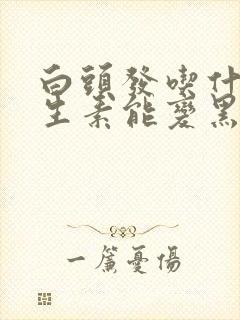 白頭發喫什
生素能變黑
一簾憂傷